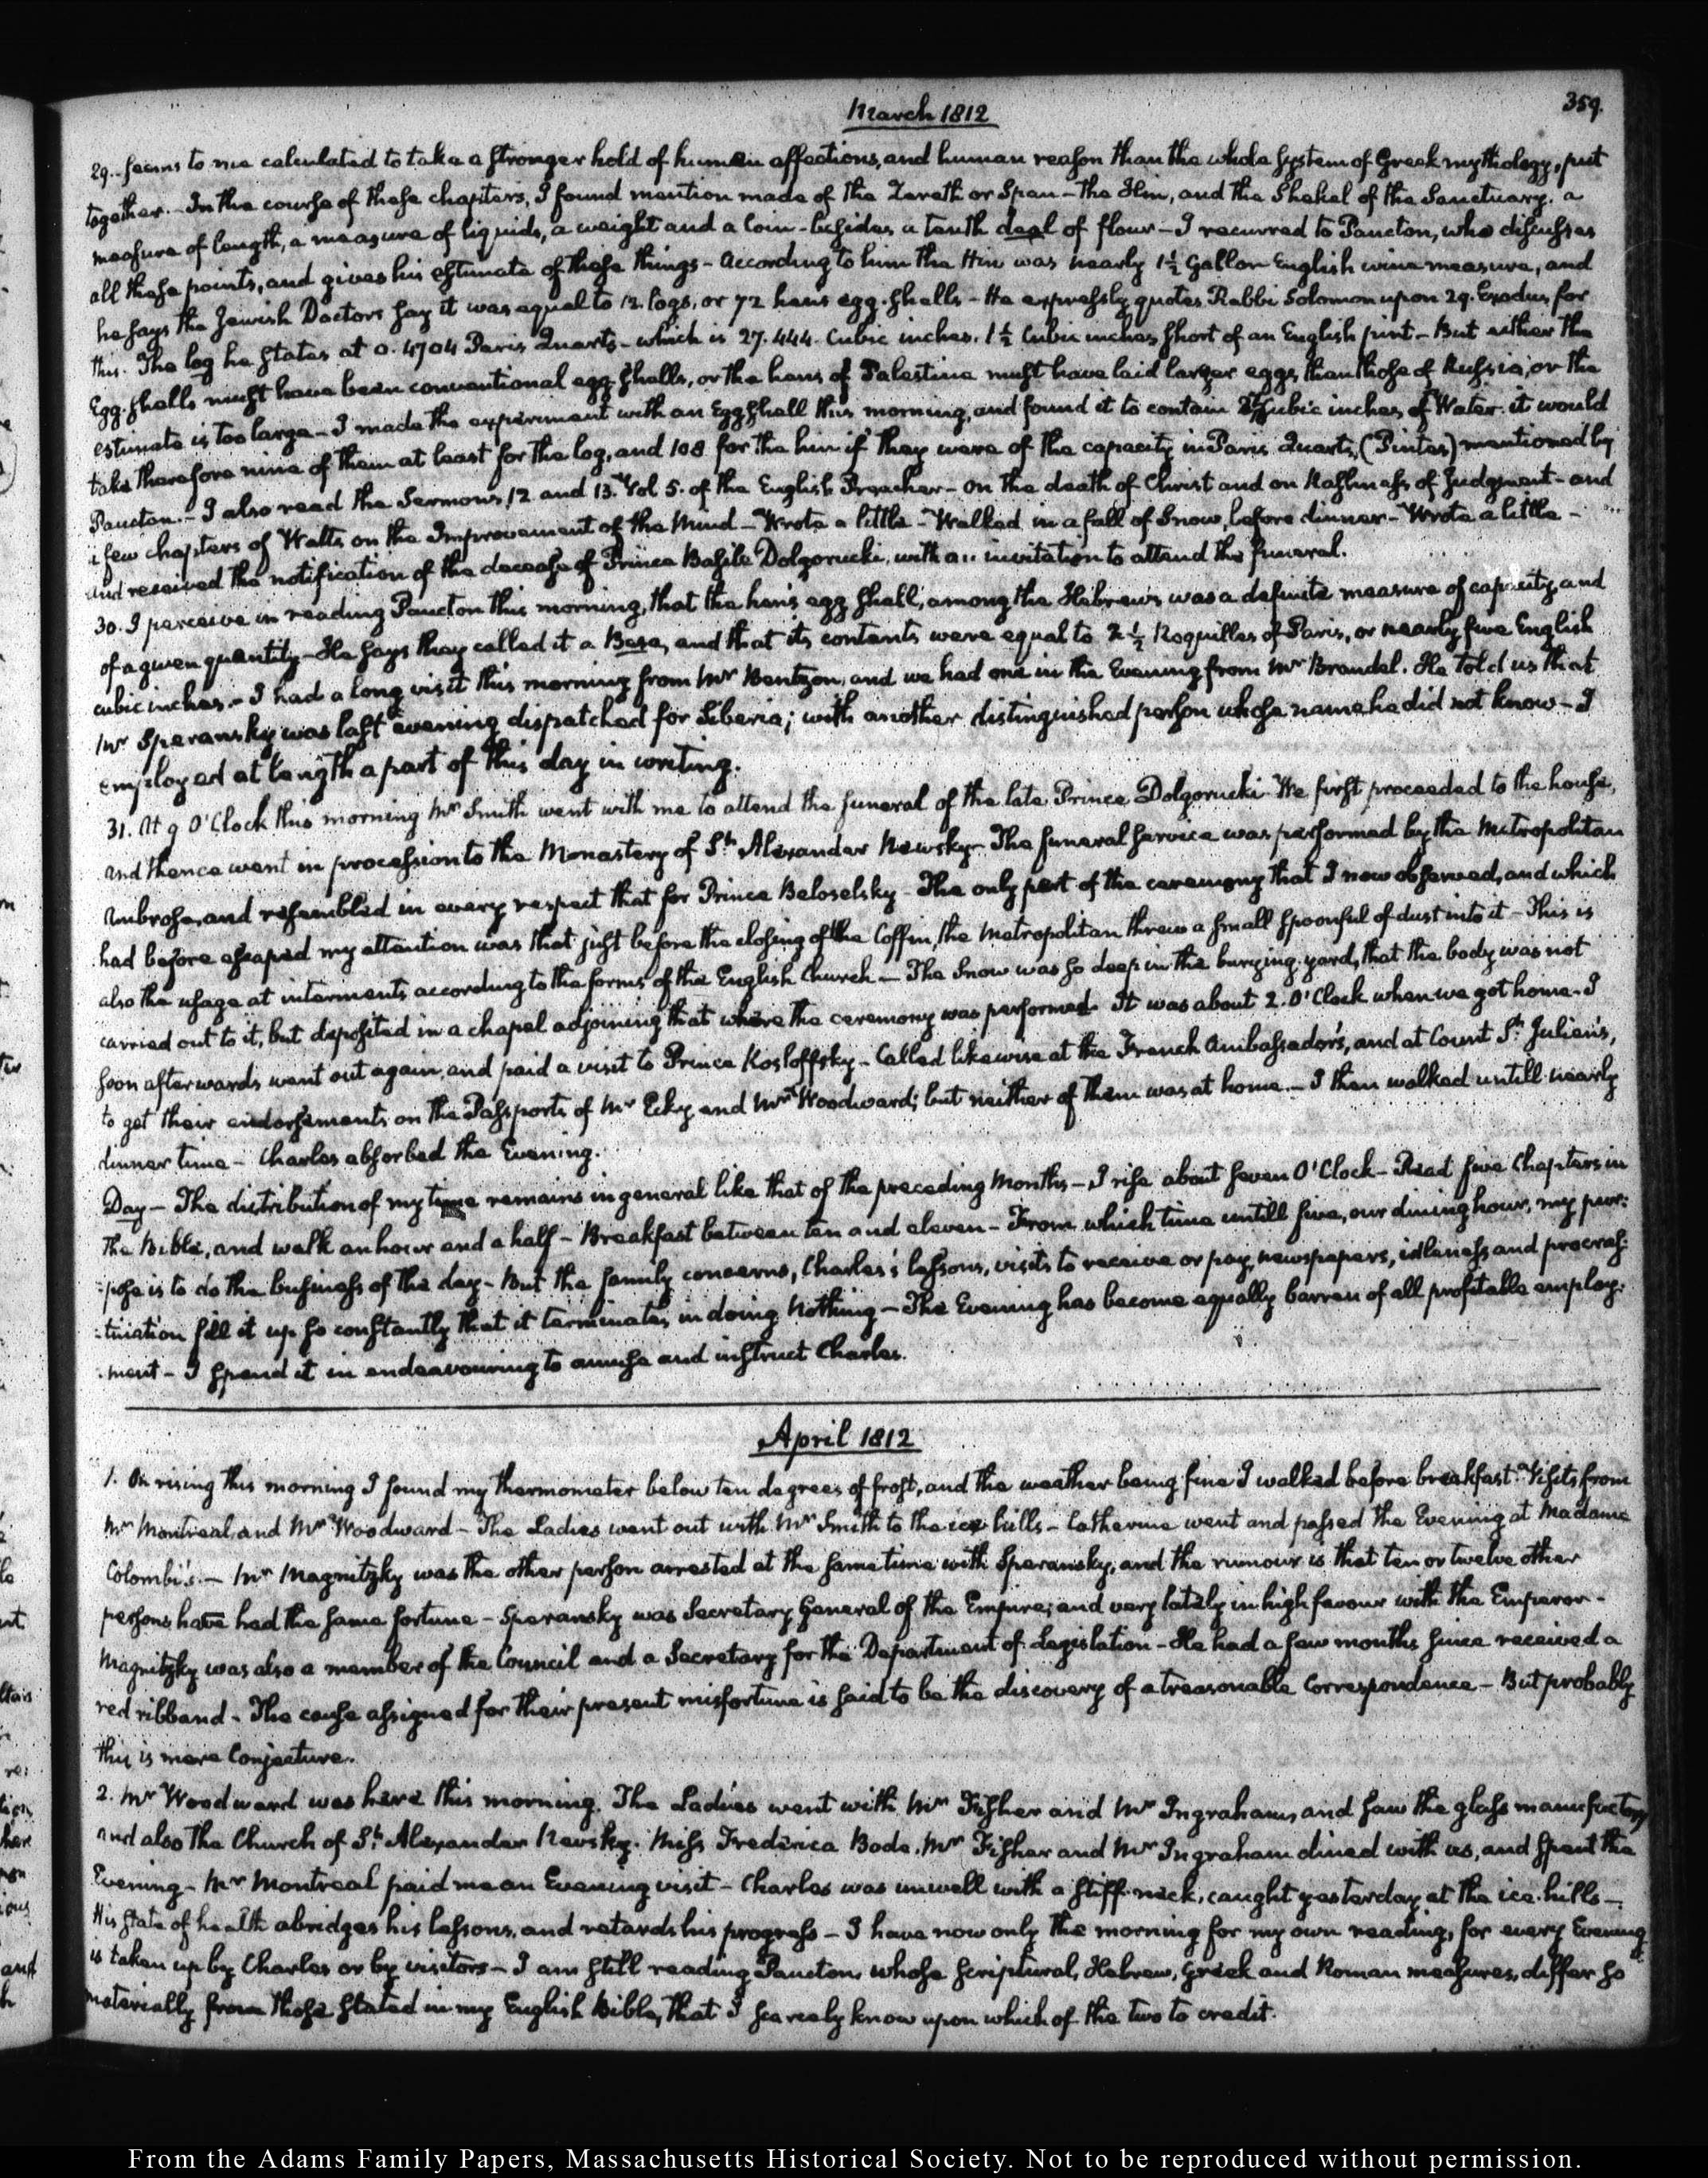 March 1812
359.
29. seems to me calculated to take a stronger hold of human affections, and human reason than the whole system of Greek mythology, put
together.- In the course of these chapters, I found mention made of the Zereth or Span - the Hin, and the Shekel of the Sanctuary. a
measure of length, a measure of liquids, a weight and a Coin - besides a tenth deal of flour - I recurred to Paucton, who discusses
all these points, and gives his estimate of these things - According to him the Hin was nearly 1½ Gallon English wine measure, and
he says the Jewish Doctors say it was equal to 12. logs, or 72 hens egg-shells - He expressly quotes Rabbi Solomon upon 29. Exodus for
this. The log he states at 0.4704 Paris Quarts - which is 27.444. Cubic inches. 1½ Cubic inches short of an English pint - But either the
Egg-shells must have been conventional egg shells, or the hens of Palestine must have laid larger eggs than those of Russia, or the
estimate is too large - I made the experiment with an Eggshell this morning, and found it to contain Cubic inches of Water. it would
take therefore nine of them at least for the log, and 108 for the hin if they were of the capacity in Paris Quarts, (Pintes) mentioned by
Paucton.- I also read the Sermons, 12 and 13. Vol 5. of the English Preacher - On the death of Christ and on Rashness of Judgment - and
a few chapters of Watts on the Improvement of the Mind - Wrote a little - Walked in a fall of Snow, before dinner - Wrote a little -
And received the notification of the decease of Prince Basile Dolgorucki, with an invitation to attend the funeral.
30. I perceive in reading Paucton this morning, that the hen's egg shell, among the Hebrews was a definite measure of capacity, and
of a given quantity - He says they called it a Besa, and that its contents were equal to 2½ Roquilles of Paris, or nearly five English
cubic inches.- I had a long visit this morning from Mr Bentzon, and we had one in the Evening from Mr Brandel. He told us that
Mr Speransky was last evening dispatched for Siberia; with another distinguished person whose name he did not know - I
employed at length a part of this day in writing.
31. At 9 O'Clock this morning Mr Smith went with me to attend the funeral of the late Prince Dolgorucki. We first proceeded to the house,
and thence went in procession to the Monastery of St. Alexander Newsky - The funeral service was performed by the Metropolitan
Ambrose, and resembled in every respect that for Prince Beloselsky - The only part of the ceremony that I now observed, and which
had before escaped my attention was that just before the closing of the Coffin, the Metropolitan threw a small spoonful of dust into it - This is
also the usage at interments according to the forms of the English Church - The Snow was so deep in the burying-yard, that the body was not
carried out to it, but deposited in a chapel adjoining that where the ceremony was performed. It was about 2. O'Clock when we got home - I
soon afterwards went out again, and paid a visit to Prince Kosloffsky - Called likewise at the French Ambassador's, and at Count St. Julien's,
to get their endorsements on the Passports of Mr Ecky and Mr Woodward; but neither of them was at home. - I then walked untill nearly
dinner time - Charles absorbed the Evening.
Day - The distribution of my time remains in general like that of the preceding Months - I rise about seven O'Clock - Read five Chapters in
the Bible, and walk an hour and a half - Breakfast between ten and eleven - From which time untill five, our dining hour, my pur:
:pose is to do the business of the day - But the family concerns, Charles's lessons, visits to receive or pay, newspapers, idleness and procras:
:tination fill it up so constantly that it terminates in doing Nothing - The Evening has become equally barren of all profitable employ:
:ment - I spend it in endeavouring to amuse and instruct Charles.
April 1812
1. On rising this morning I found my thermometer below ten degrees of frost, and the weather being fine I walked before breakfast. Visits from
Mr Montreal, and Mr Woodward - The Ladies went out with Mr Smith to the ice hills - Catherine went and passed the Evening at Madame
Colombi's. - Mr Magnitzky was the other person arrested at the same time with Speransky, and the rumour is that ten or twelve other
persons have had the same fortune - Speransky was Secretary General of the Empire; and very lately in high favour with the Emperor -
Magnitzky was also a member of the Council and a Secretary for the Department of Legislation - He had a few months since received a
red ribband - The cause assigned for their present misfortune is said to be the discovery of a treasonable Correspondence - But probably
this is mere Conjecture.
2. Mr Woodward was here this morning. The Ladies went with Mr Fisher and Mr Ingraham, and saw the glass manufactory
and also the Church of St. Alexander Newsky. Miss Frederica Bode, Mr Fisher and Mr Ingraham dined with us, and spent the
Evening - Mr Montreal paid me an Evening visit - Charles was unwell with a stiff-neck, caught yesterday at the ice-hills -
His state of health abridges his lessons, and retards his progress - I have now only the morning for my own reading, for every Evening
is taken up by Charles or by visitors - I am still reading Paucton, whose Scriptural, Hebrew, Greek and Roman measures, differ so
materially from those stated in my English Bible, that I scarcely know upon which of the two to credit.
From the Adams Family Papers, Massachusetts Historical Society. Not to be reproduced without permission.